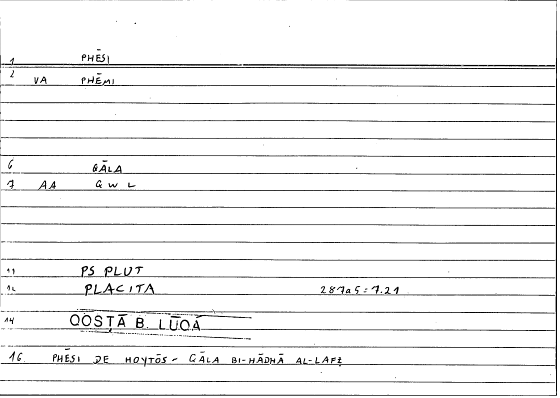 1 PHĒSI
2 VA PHĒMI
6 QĀLA
7 AA Q W L
11 PS PLUT
12 PLACITA 287a5 = 7.21
14 QOSṬĀ B. LŪQĀ
16. PHĒSI DE HOYTŌS - QĀLA BI-HĀDHĀ AL-LAFẒ